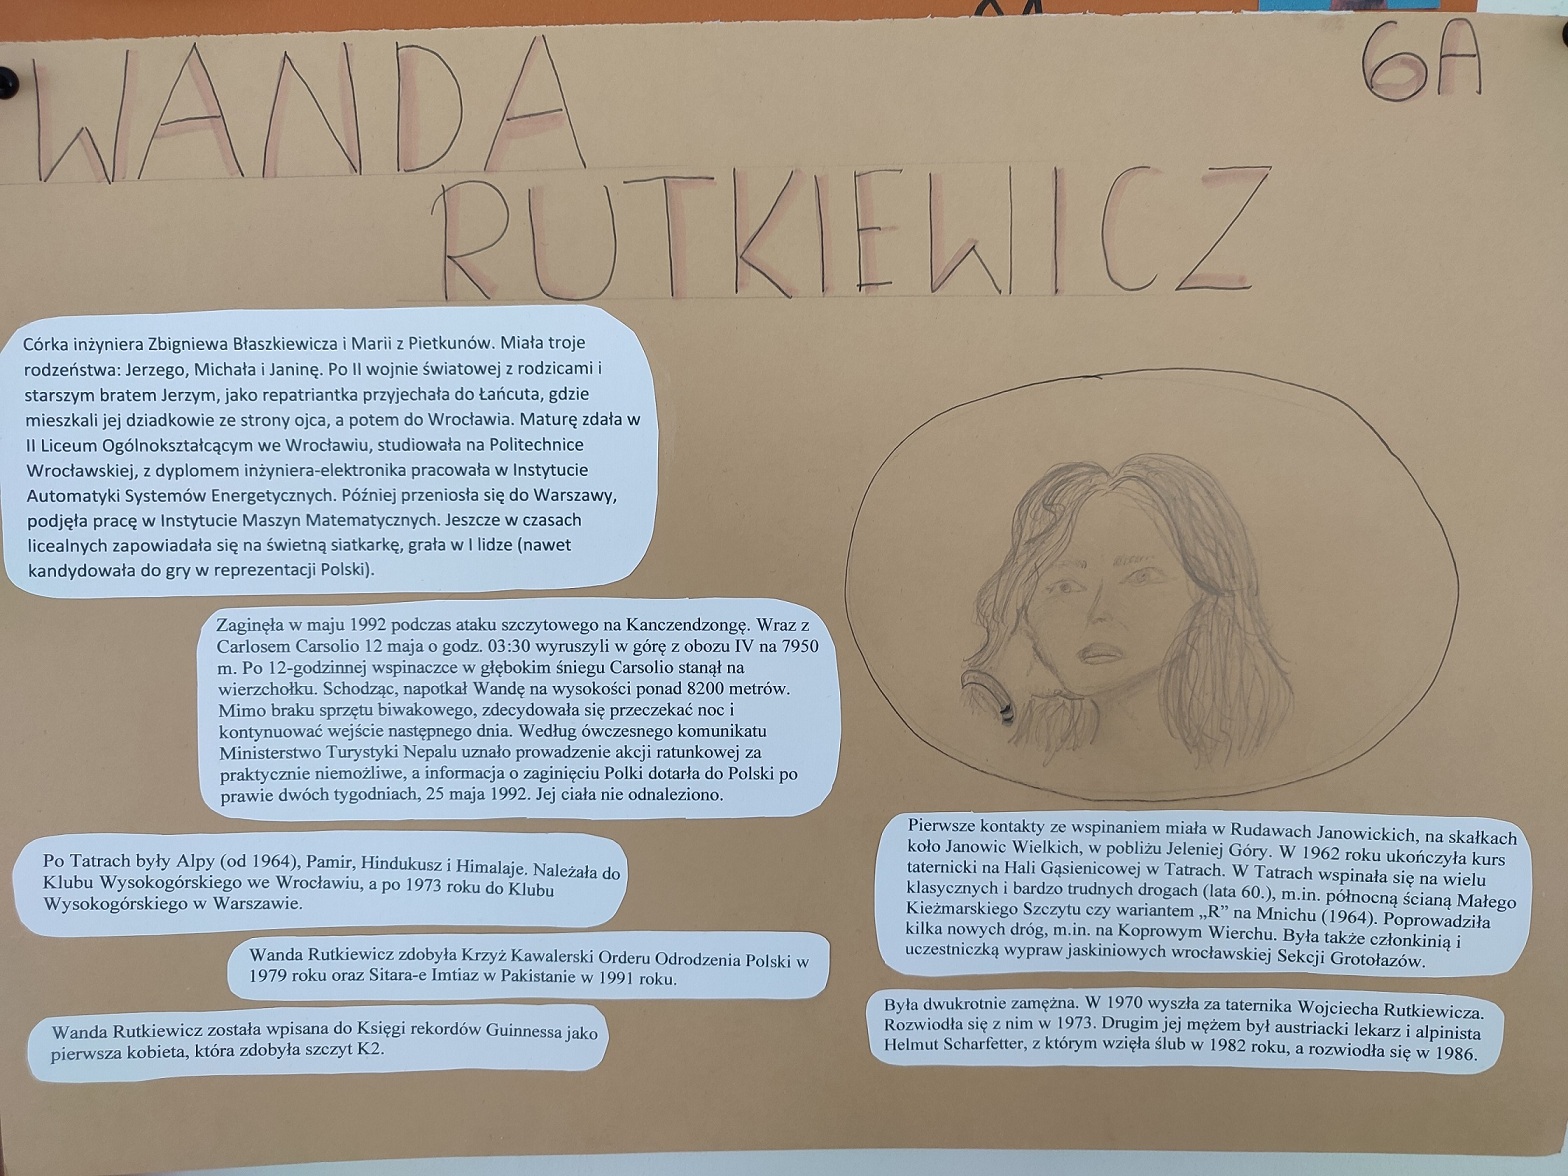 WANDA
RUTKIEWICZ
6A
Córka inżyniera Zbigniewa Błaszkiewicza i Marii z Pietkunów. Miała troje
rodzeństwa: Jerzego, Michała i Janinę. Po II wojnie światowej z rodzicami i
starszym bratem Jerzym, jako repatriantka przyjechała do Łańcuta, gdzie
mieszkali jej dziadkowie ze strony ojca, a potem do Wrocławia. Maturę zdała w
II Liceum Ogólnokształcącym we Wrocławiu, studiowała na Politechnice
Wrocławskiej, z dyplomem inżyniera-elektronika pracowała w Instytucie
Automatyki Systemów Energetycznych. Później przeniosła się do Warszawy,
podjęła pracę w Instytucie Maszyn Matematycznych. Jeszcze w czasach
licealnych zapowiadała się na świetną siatkarkę, grała w I lidze (nawet
kandydowała do gry w reprezentacji Polski).
Zaginęła w maju 1992 podczas ataku szczytowego na Kanczendzongę. Wraz z
Carlosem Carsolio 12 maja o godz. 03:30 wyruszyli w górę z obozu IV na 7950
m. Po 12-godzinnej wspinaczce w głębokim śniegu Carsolio stanął na
wierzchołku. Schodząc, napotkał Wandę na wysokości ponad 8200 metrów.
Mimo braku sprzętu biwakowego, zdecydowała się przeczekać noc i
kontynuować wejście następnego dnia. Według ówczesnego komunikatu
Ministerstwo Turystyki Nepalu uznało prowadzenie akcji ratunkowej za
praktycznie niemożliwe, a informacja o zaginięciu Polki dotarła do Polski po
prawie dwóch tygodniach, 25 maja 1992. Jej ciała nie odnaleziono.
Po Tatrach były Alpy (od 1964), Pamir, Hindukusz i Himalaje. Należała do
Klubu Wysokogórskiego we Wrocławiu, a po 1973 roku do Klubu
Wysokogórskiego w Warszawie.
Wanda Rutkiewicz zdobyła Krzyż Kawalerski Orderu Odrodzenia Polski w
1979 roku oraz Sitara-e Imtiaz w Pakistanie w 1991 roku.
Wanda Rutkiewicz została wpisana do Księgi rekordów Guinnessa jako
pierwsza kobieta, która zdobyła szczyt K2.
Pierwsze kontakty ze wspinaniem miała w Rudawach Janowickich, na skałkach
koło Janowic Wielkich, w pobliżu Jeleniej Góry. W 1962 roku ukończyła kurs
taternicki na Hali Gąsienicowej w Tatrach. W Tatrach wspinała się na wielu
klasycznych i bardzo trudnych drogach (lata 60.), m.in. północną ścianą Małego
Kieżmarskiego Szczytu czy wariantem „R” na Mnichu (1964). Poprowadziła
kilka nowych dróg, m.in. na Koprowym Wierchu. Była także członkinią i
uczestniczką wypraw jaskiniowych wrocławskiej Sekcji Grotołazów.
Była dwukrotnie zamężna. W 1970 wyszła za taternika Wojciecha Rutkiewicza.
Rozwiodła się z nim w 1973. Drugim jej mężem był austriacki lekarz i alpinista
Helmut Scharfetter, z którym wzięła ślub w 1982 roku, a rozwiodła się w 1986.